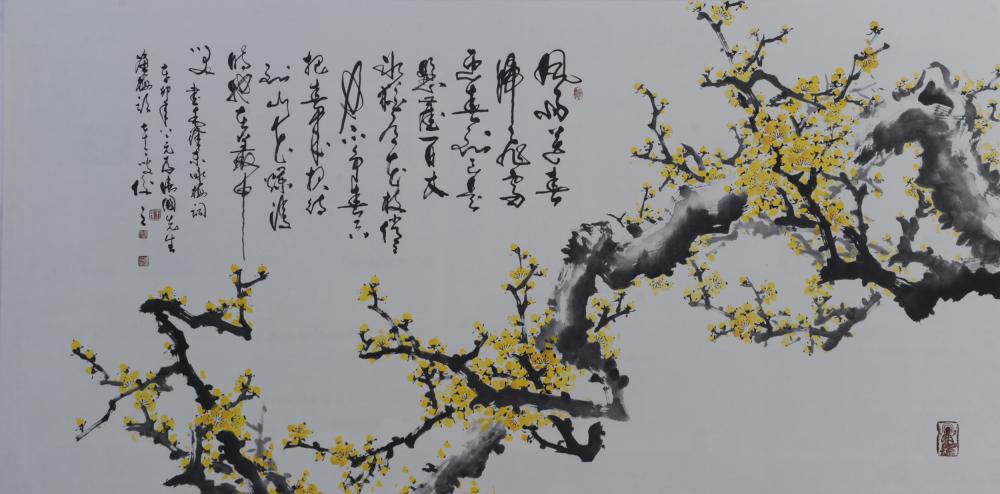 风雨送春
归飞雪
迎春到已是
悬崖百丈
冰犹有花枝俏
俏也不争春只
把春来报待
到山花烂漫
时她在丛中
笑 书毛泽东咏梅词
辛卯年 国先生